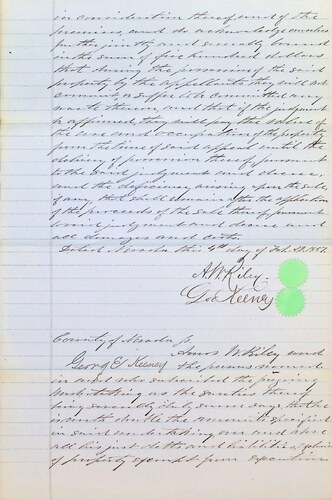 in consideration thereof and of the
premises, and do acknowledge ourselves
jointly and severally bound
in the sum of five hundred dollars
that during the possession of the said
property by the appellants they will not
commit or suffer to be committed any
waste thereon, and that if the judgment
be affirmed, they will pay the value of
the use and occupation of the property
from the time of said appeal until the
delivery of possession thereof pursuant
to the said judgment and decree,
and the deficiency arising upon the sale
if any, that shall remain after the application
of the proceeds of the sale thereof pursuant
to said judgment and decree and
all damages and costs.
Dated Nevada this 4th day of Feb. A.D. 1857.
A. W. Riley
Geo E Keeney
County of Nevada ss
Amos W. Riley and
George E Keeney the persons named
in and who subscribed the foregoing
undertaking as the sureties thereof
being severally duly sworn says that he
is worth double the amount specified
in said undertaking over and above
all his just debts and liabilities, exclusive
of property exempt from execution